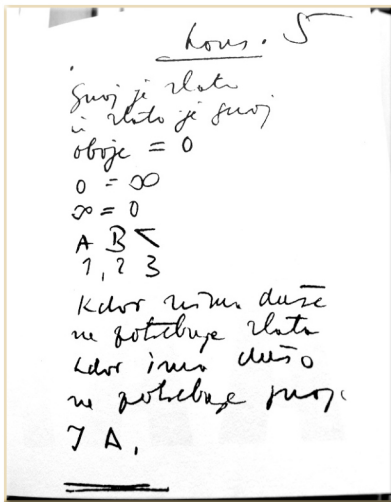 Kons. 5
Gnoj je zlato
in zlato je gnoj
oboje = 0
0 = ∞
∞ = 0
A B <
1, 2 3
Kdor nima duše
ne potrebuje zlata
kdor ima dušo
ne potrebuje gnoja
I A.